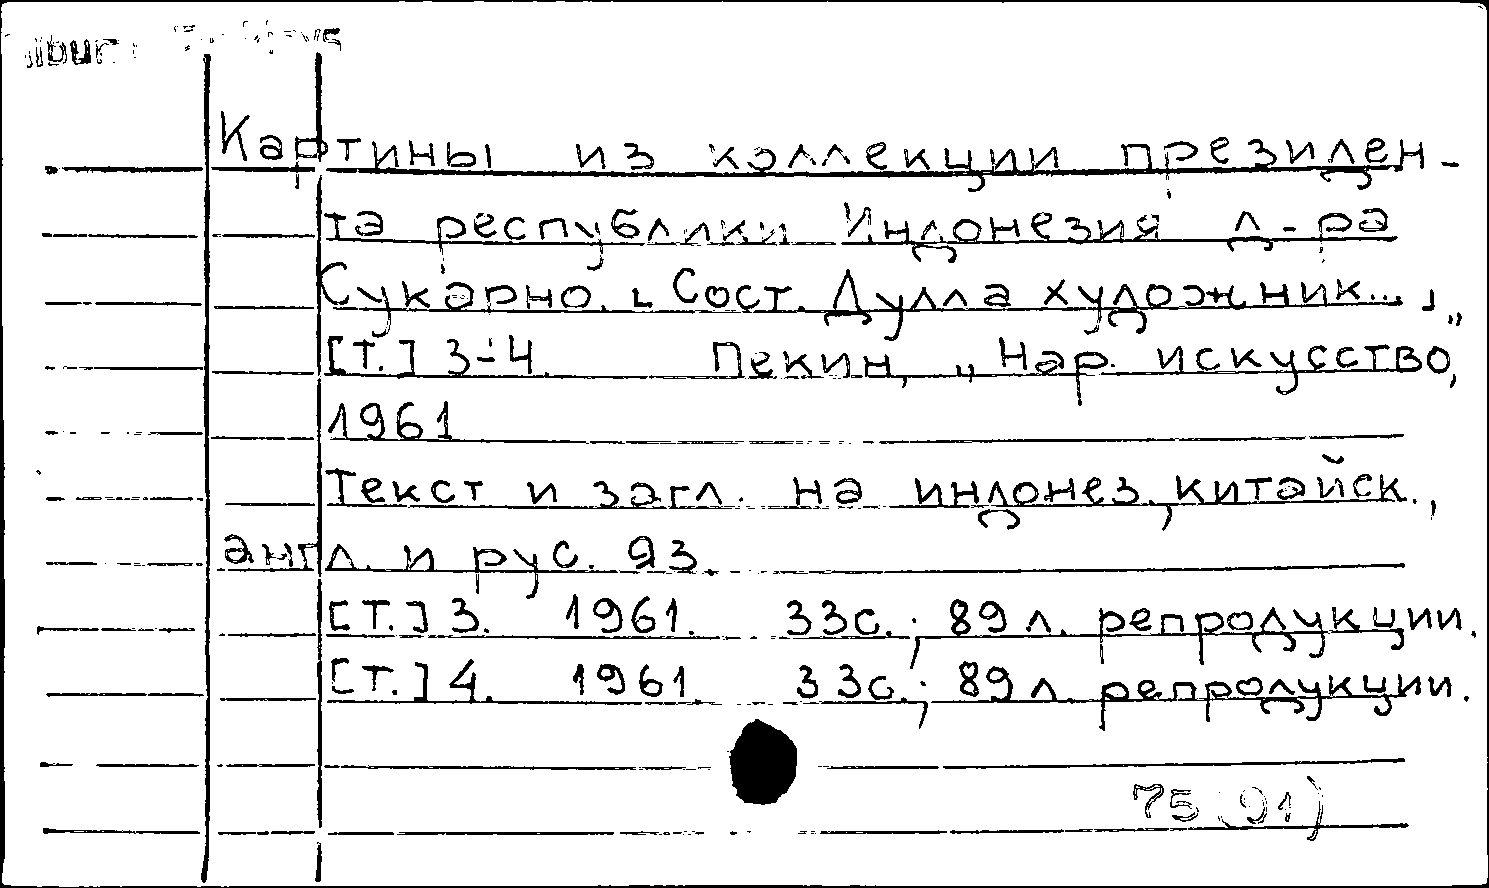 Картины из коллекции президен-
та республики Индонезия д-ра
Сукарно. [Сост. Дулла художник...]
[Т.] 3-4. Пекин, „Нар. искусство",
1961
Текст и загл. на индонез., китайск.,
англ. и рус. яз.
[Т.] 3. 1961. 33с.; 89 л. репродукции.
[Т.] 4. 1961. 33с.; 89 л. репродукции.
75(91)